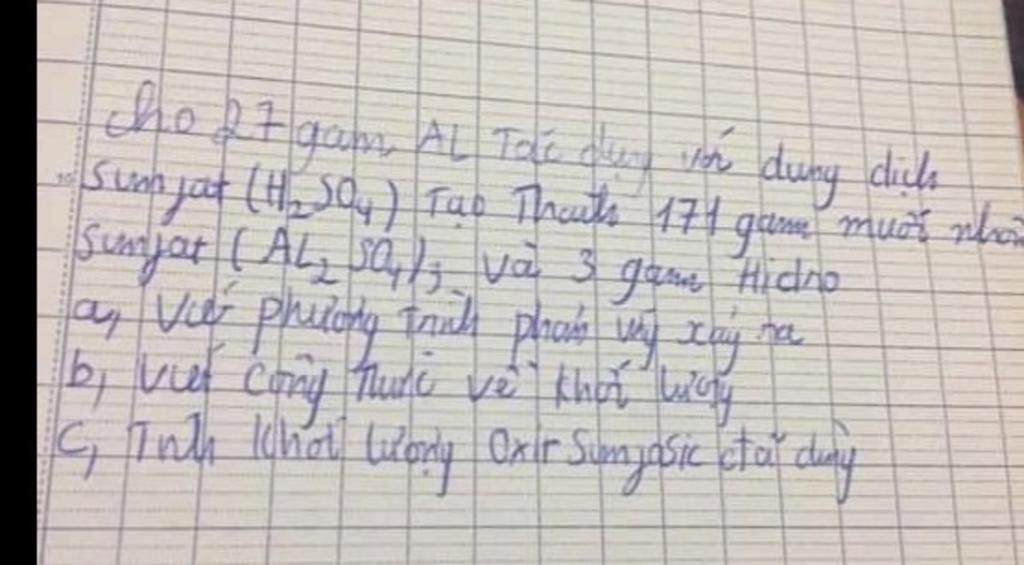 cho 27 gam AL Tác dụng với dung dịch
Sunfat (H₂SO₄) Tạo Thành 171 gam muối nhôm
Sunfat (AL₂SO₄)₃ và 3 gam Hidno
a, viết phương trình phản ứng xảy ra
b, viết công Thức về khối lượng
c, Tính khối lượng Oxit Sunfosic đã dùng